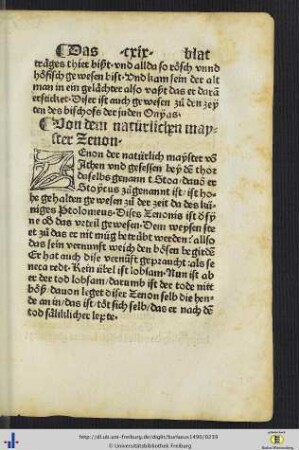 Das · cxix · blat
träges thier bist vnd allda so rösch vnnd
höfisch gewesen bist. Vnd kam sein der alt
man in ein gelächter also vast das er darā
ersticket. Diser ist auch gewesen zů den zey
ten des bischofs der juden Onyas.
Von dem natürlichen may-
ster Zenon.
ZEnon der natürlich mayster vō
Athen vnd gesessen bey dē thor
daselbs genannt Stoa/dauō er
Stoycus zůgenannt ist/ist ho-
he gehalten gewesen zů der zeit da des kü-
niges Ptolomeus. Dises Zenonis ist
das vrteil gewesen. Dem weysen
et zů das er nit müg betrübt werden/also
das sein vernunft weich den bösen begirdē
Er hat auch dise vernüft gepracht als se
neca redt. Kein übel ist lobsam. Nun ist ab
er der tod lobsam/darumb ist der tode nitt
böß/dauon leget diser Zenon selb die hen-
de an in/das ist töt sich selb/das er nach dē
tod sälklicher lepte.
http://dl.ub.uni-freiburg.de/diglit/burlaeus1490/0239
© Universitätsbibliothek Freiburg